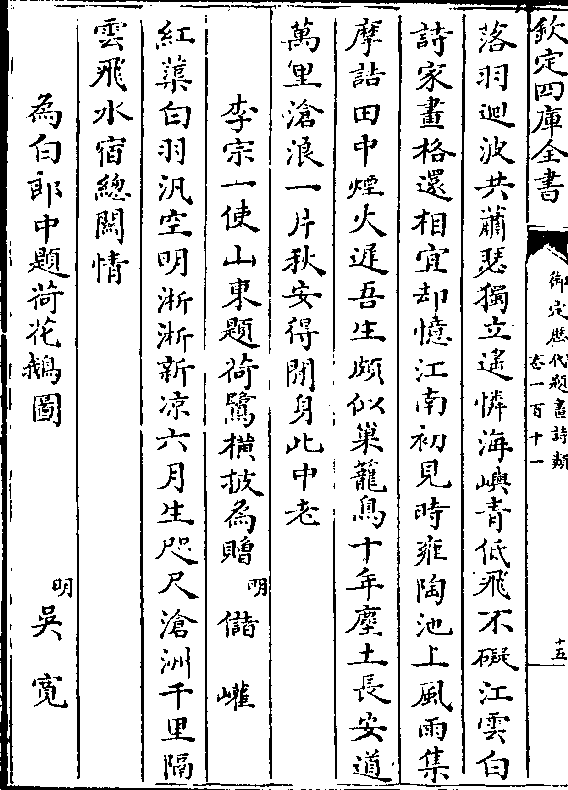 欽定四庫全書
御定歷代題畫詩類
卷一百十一
十五
落羽迴波共蕭瑟獨立遙憐海嶼青低飛不礙江雲白
詩家畫格還相宜却憶江南初見時雍陶池上風雨集
摩詰田中煙火遲吾生頗似巢籠鳥十年塵土長安道
萬里滄浪一片秋安得閒身此中老
李宗一使山東題荷鷺橫披為贈 明 儲巏
紅蕖白羽汎空明淅淅新凉六月生咫尺滄洲千里隔
雲飛水宿總關情
為白郎中題荷花鵝圖 明 吳寬